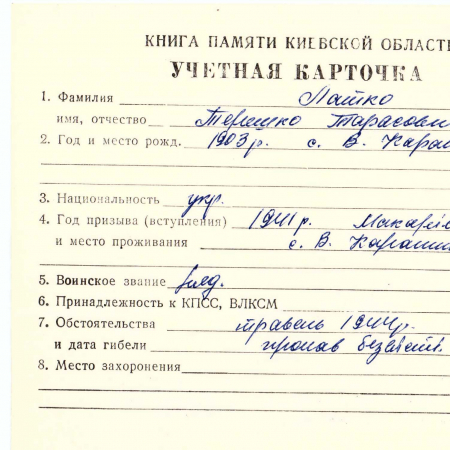 КНИГА ПАМЯТИ КИЕВСКОЙ ОБЛАСТ
УЧЕТНАЯ КАРТОЧКА
1. Фамилия Лашко
имя, отчество Терешко Тарасови
2. Год и место рожд. 1903 р. с. В. Караш
3. Национальность укр.
4. Год призыва (вступления) 1941 р. Макарів
и место проживания с. В. Карашин
5. Воинское звание
6. Принадлежность к КПСС, ВЛКСМ
7. Обстоятельства травень 1944 р.
и дата гибели пропав безвісті.
8. Место захоронения